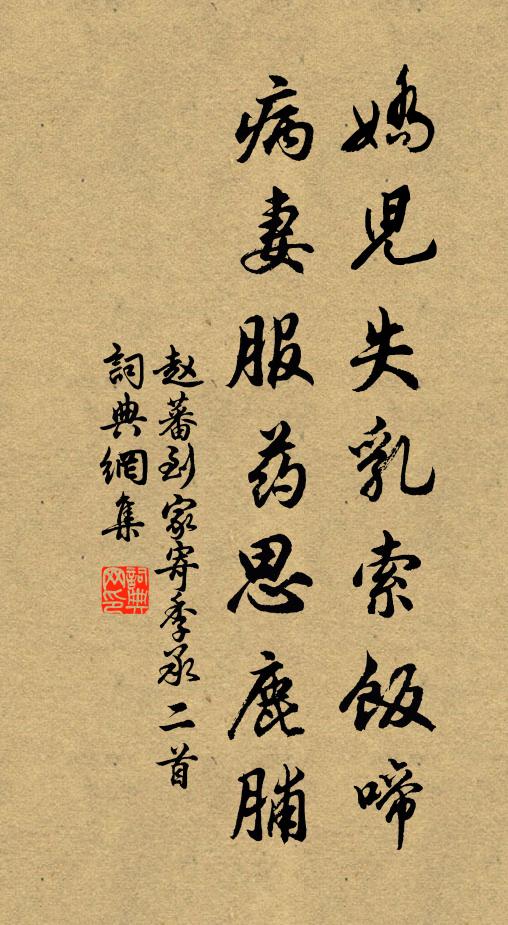 娇儿失乳索饭啼
病妻服药思鹿脯
赵蕃到家寄季承二首
詞典網集
詞典网印